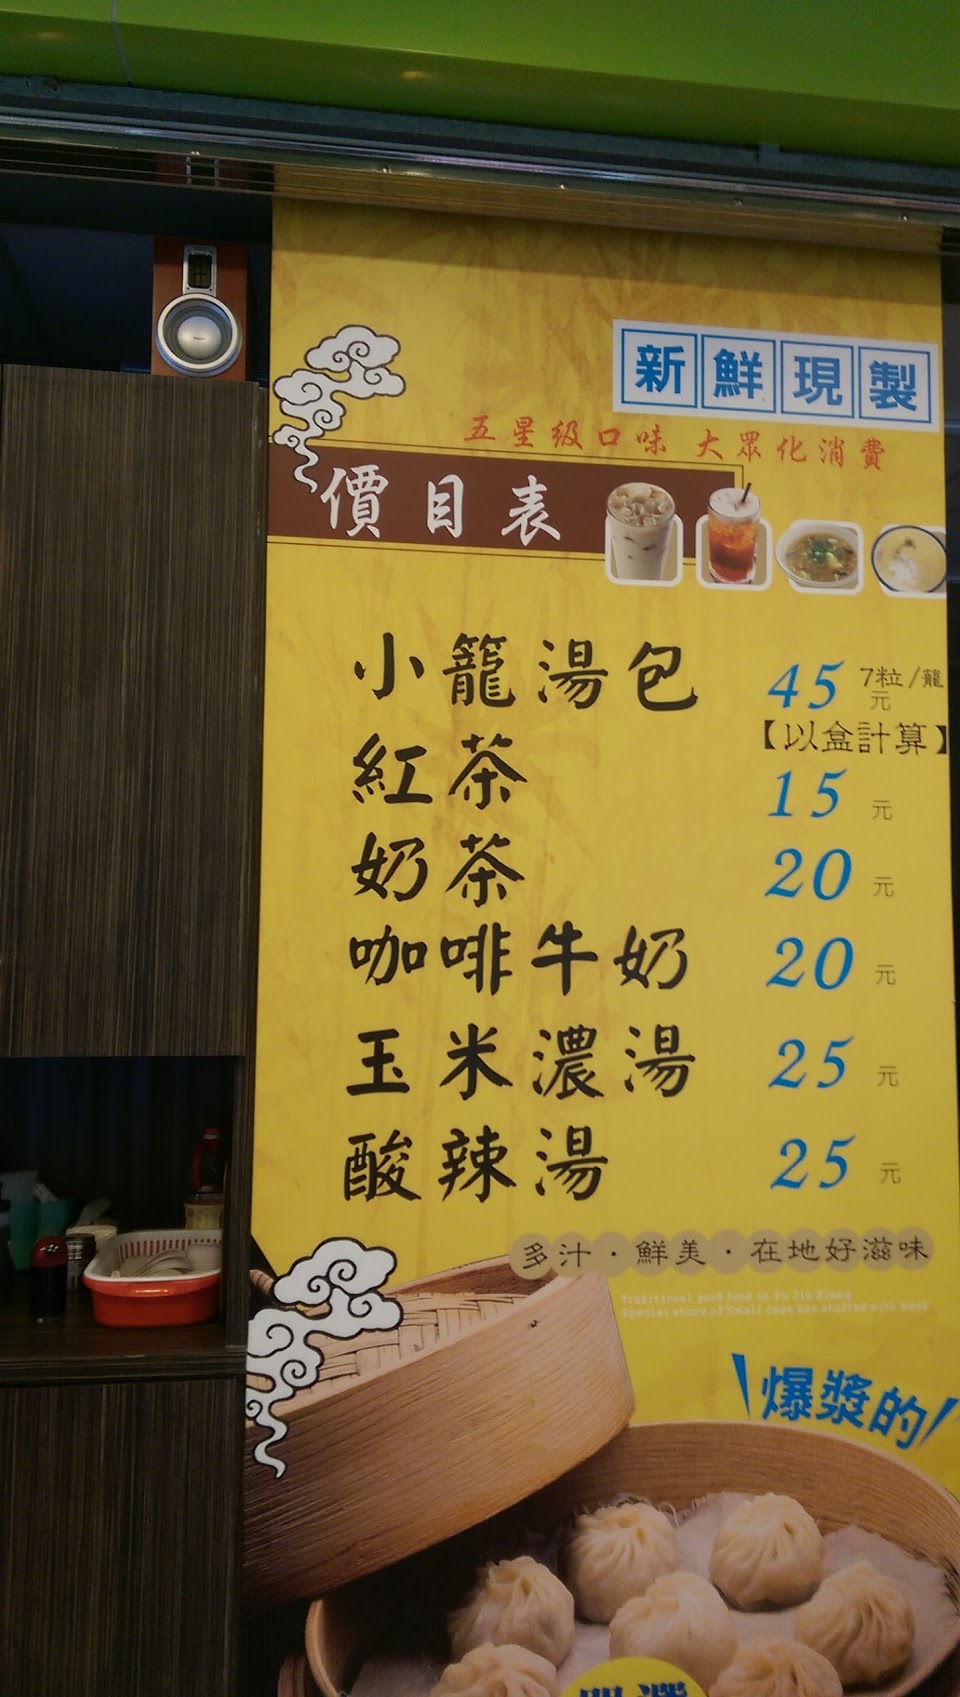 新鮮現製
五星級口味 大眾化消費
價目表
小籠湯包 45元 7粒/籠
【以盒計算】
紅茶 15元
奶茶 20元
咖啡牛奶 20元
玉米濃湯 25元
酸辣湯 25元
多汁·鮮美·在地好滋味
Traditional good food in Fu Jin Xiang
Special store of Small cage bao stuffed with meat
爆漿的